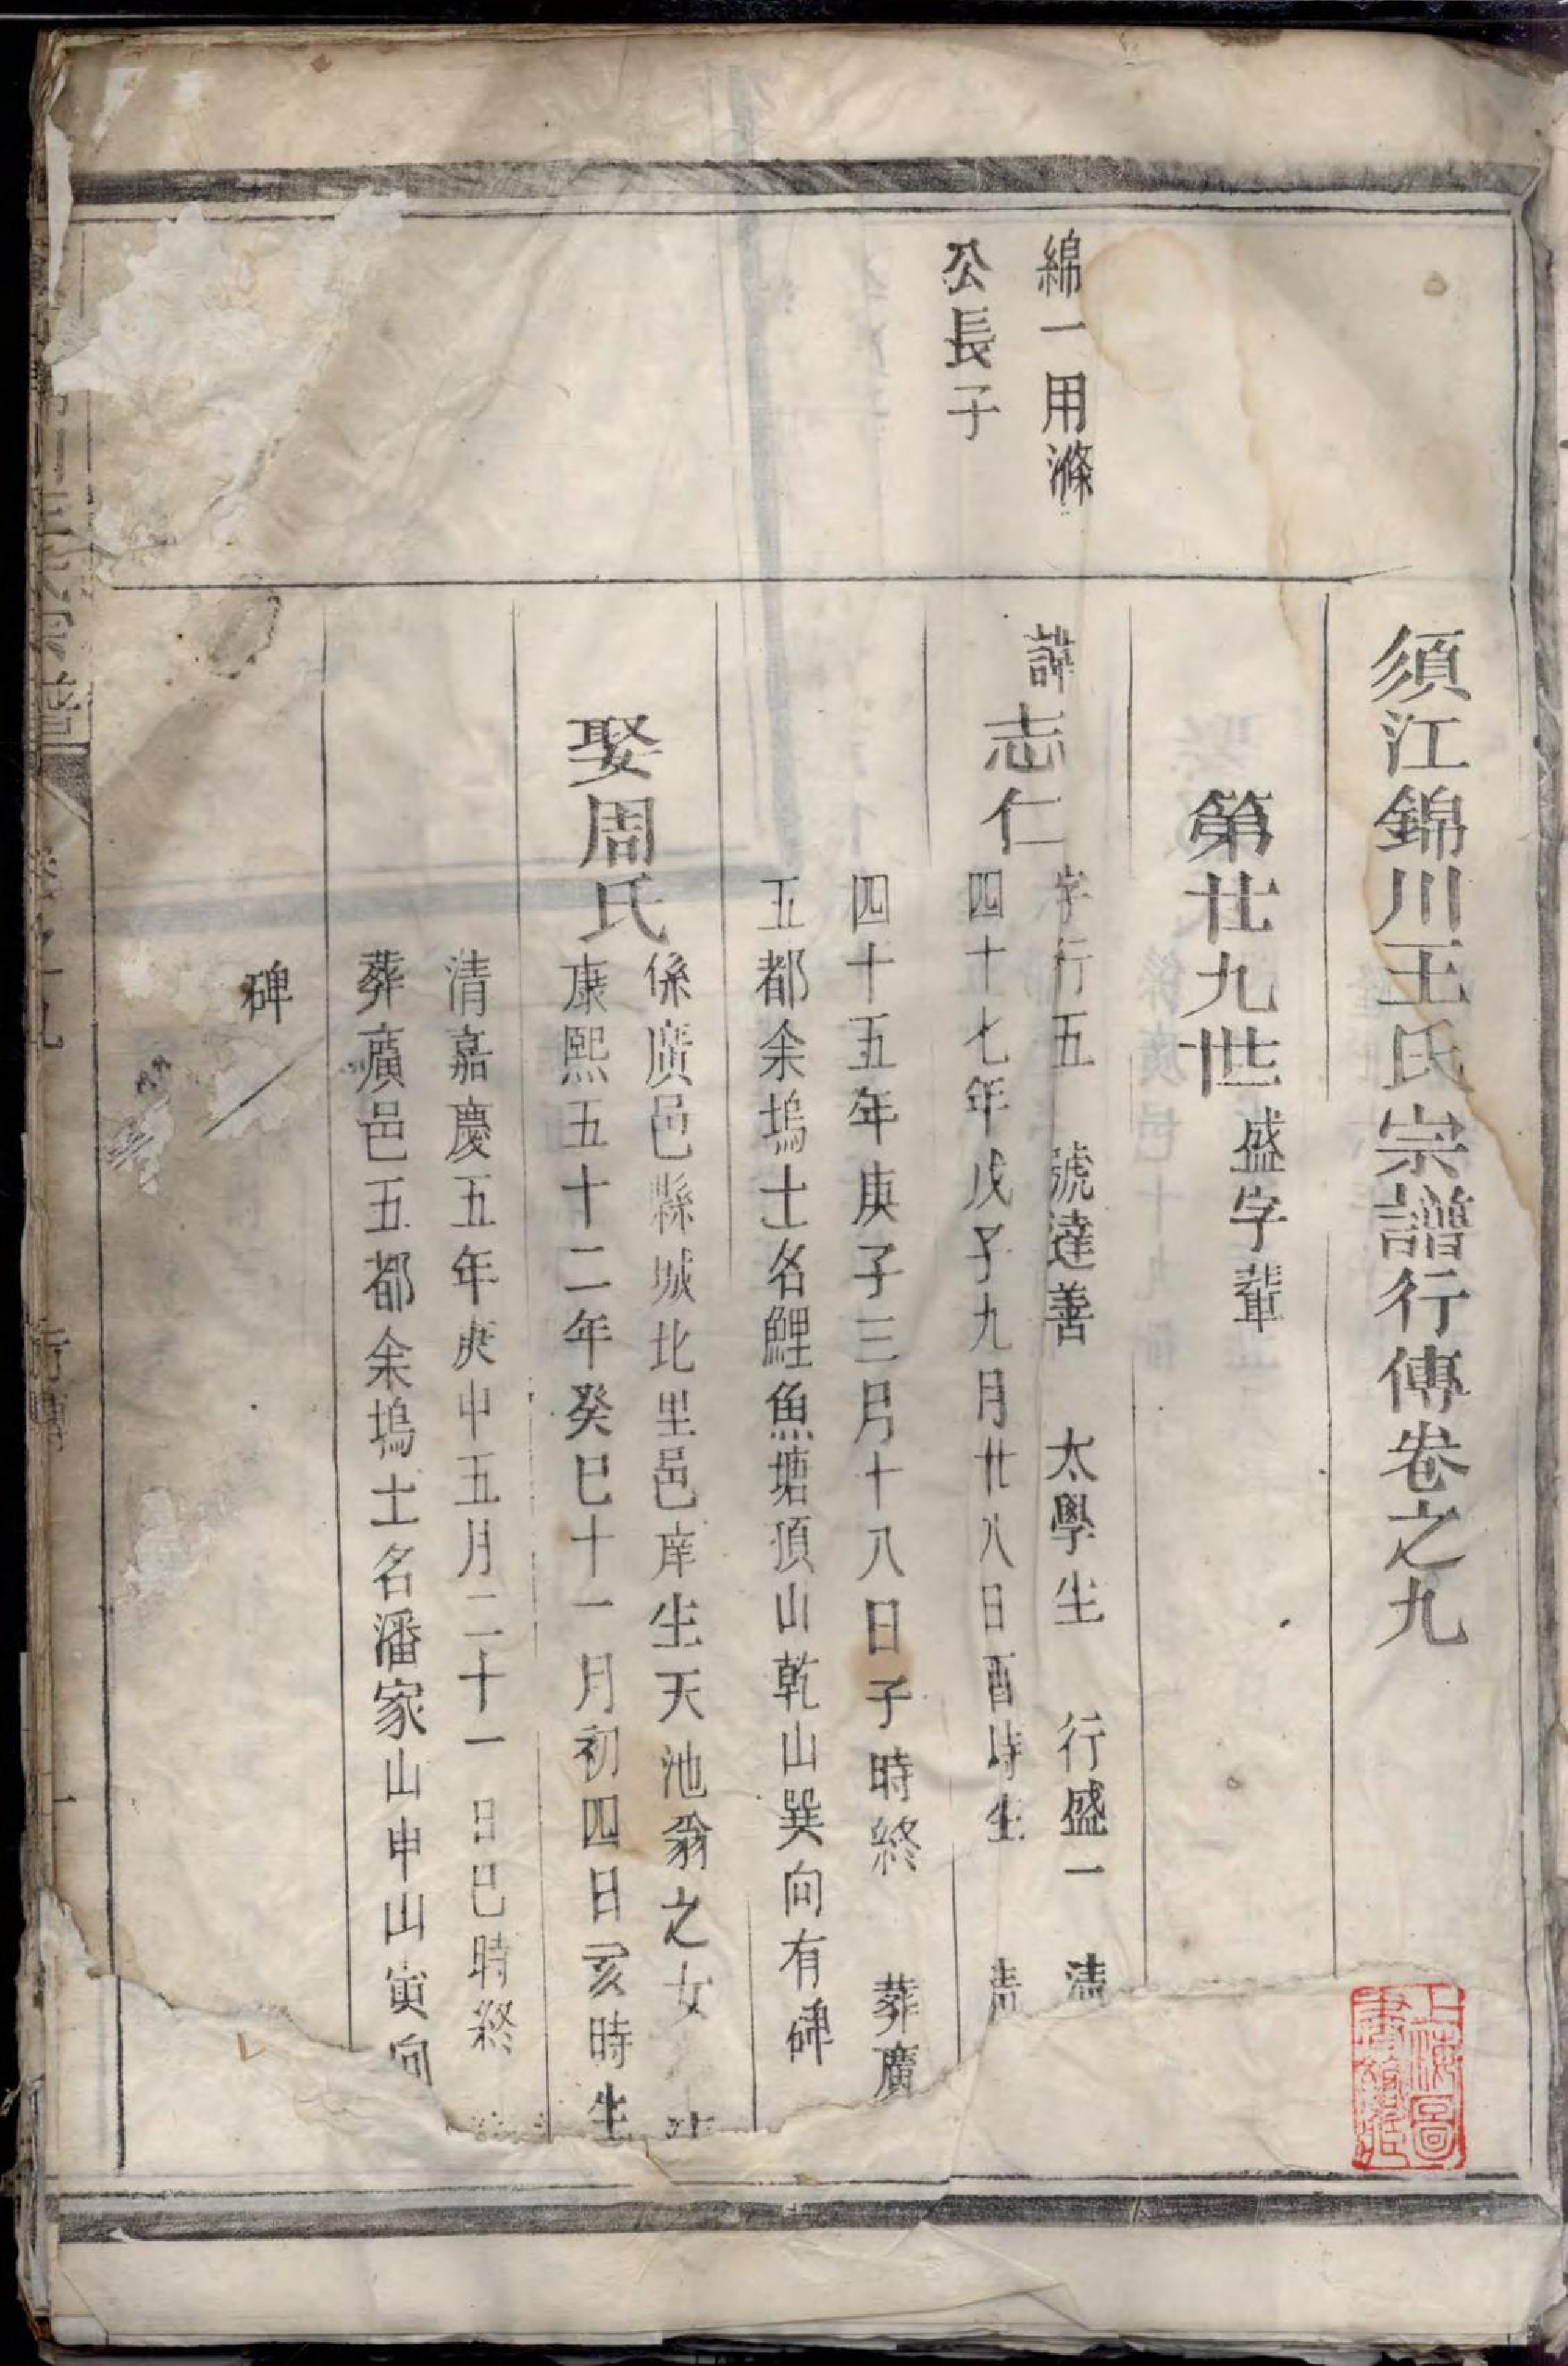 須江錦川王氏宗譜行傳卷之九
第廿九世盛字輩
綿一用滌
公長子
諱志仁
字行五 號達善 太學生 行盛一 清
四十七年戊子九月廿八日酉時生 清
四十五年庚子三月十八日子時終 葬廣
五都余塢土名鯉魚塘頂山乾山巽向有碑
娶周氏
係廣邑縣城北里邑庠生天池翁之女
康熙五十二年癸巳十一月初四日亥時生
清嘉慶五年庚申五月二十一日巳時終
葬廣邑五都余塢土名潘家山申山寅向
碑
上海圖
書館藏